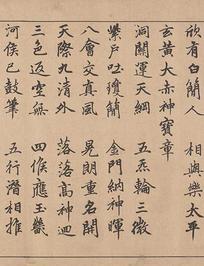 欣有白簡人 相與樂太平
玄黃大赤神寶章
洞關運天綱 五炁輪三
紫戶吐瓊 金門納神暉
八會交真風 晃朗重名開
天際九清外 落落高神迴
三色返空無 四候應玉
河侯已鼓筆 五行潛相推